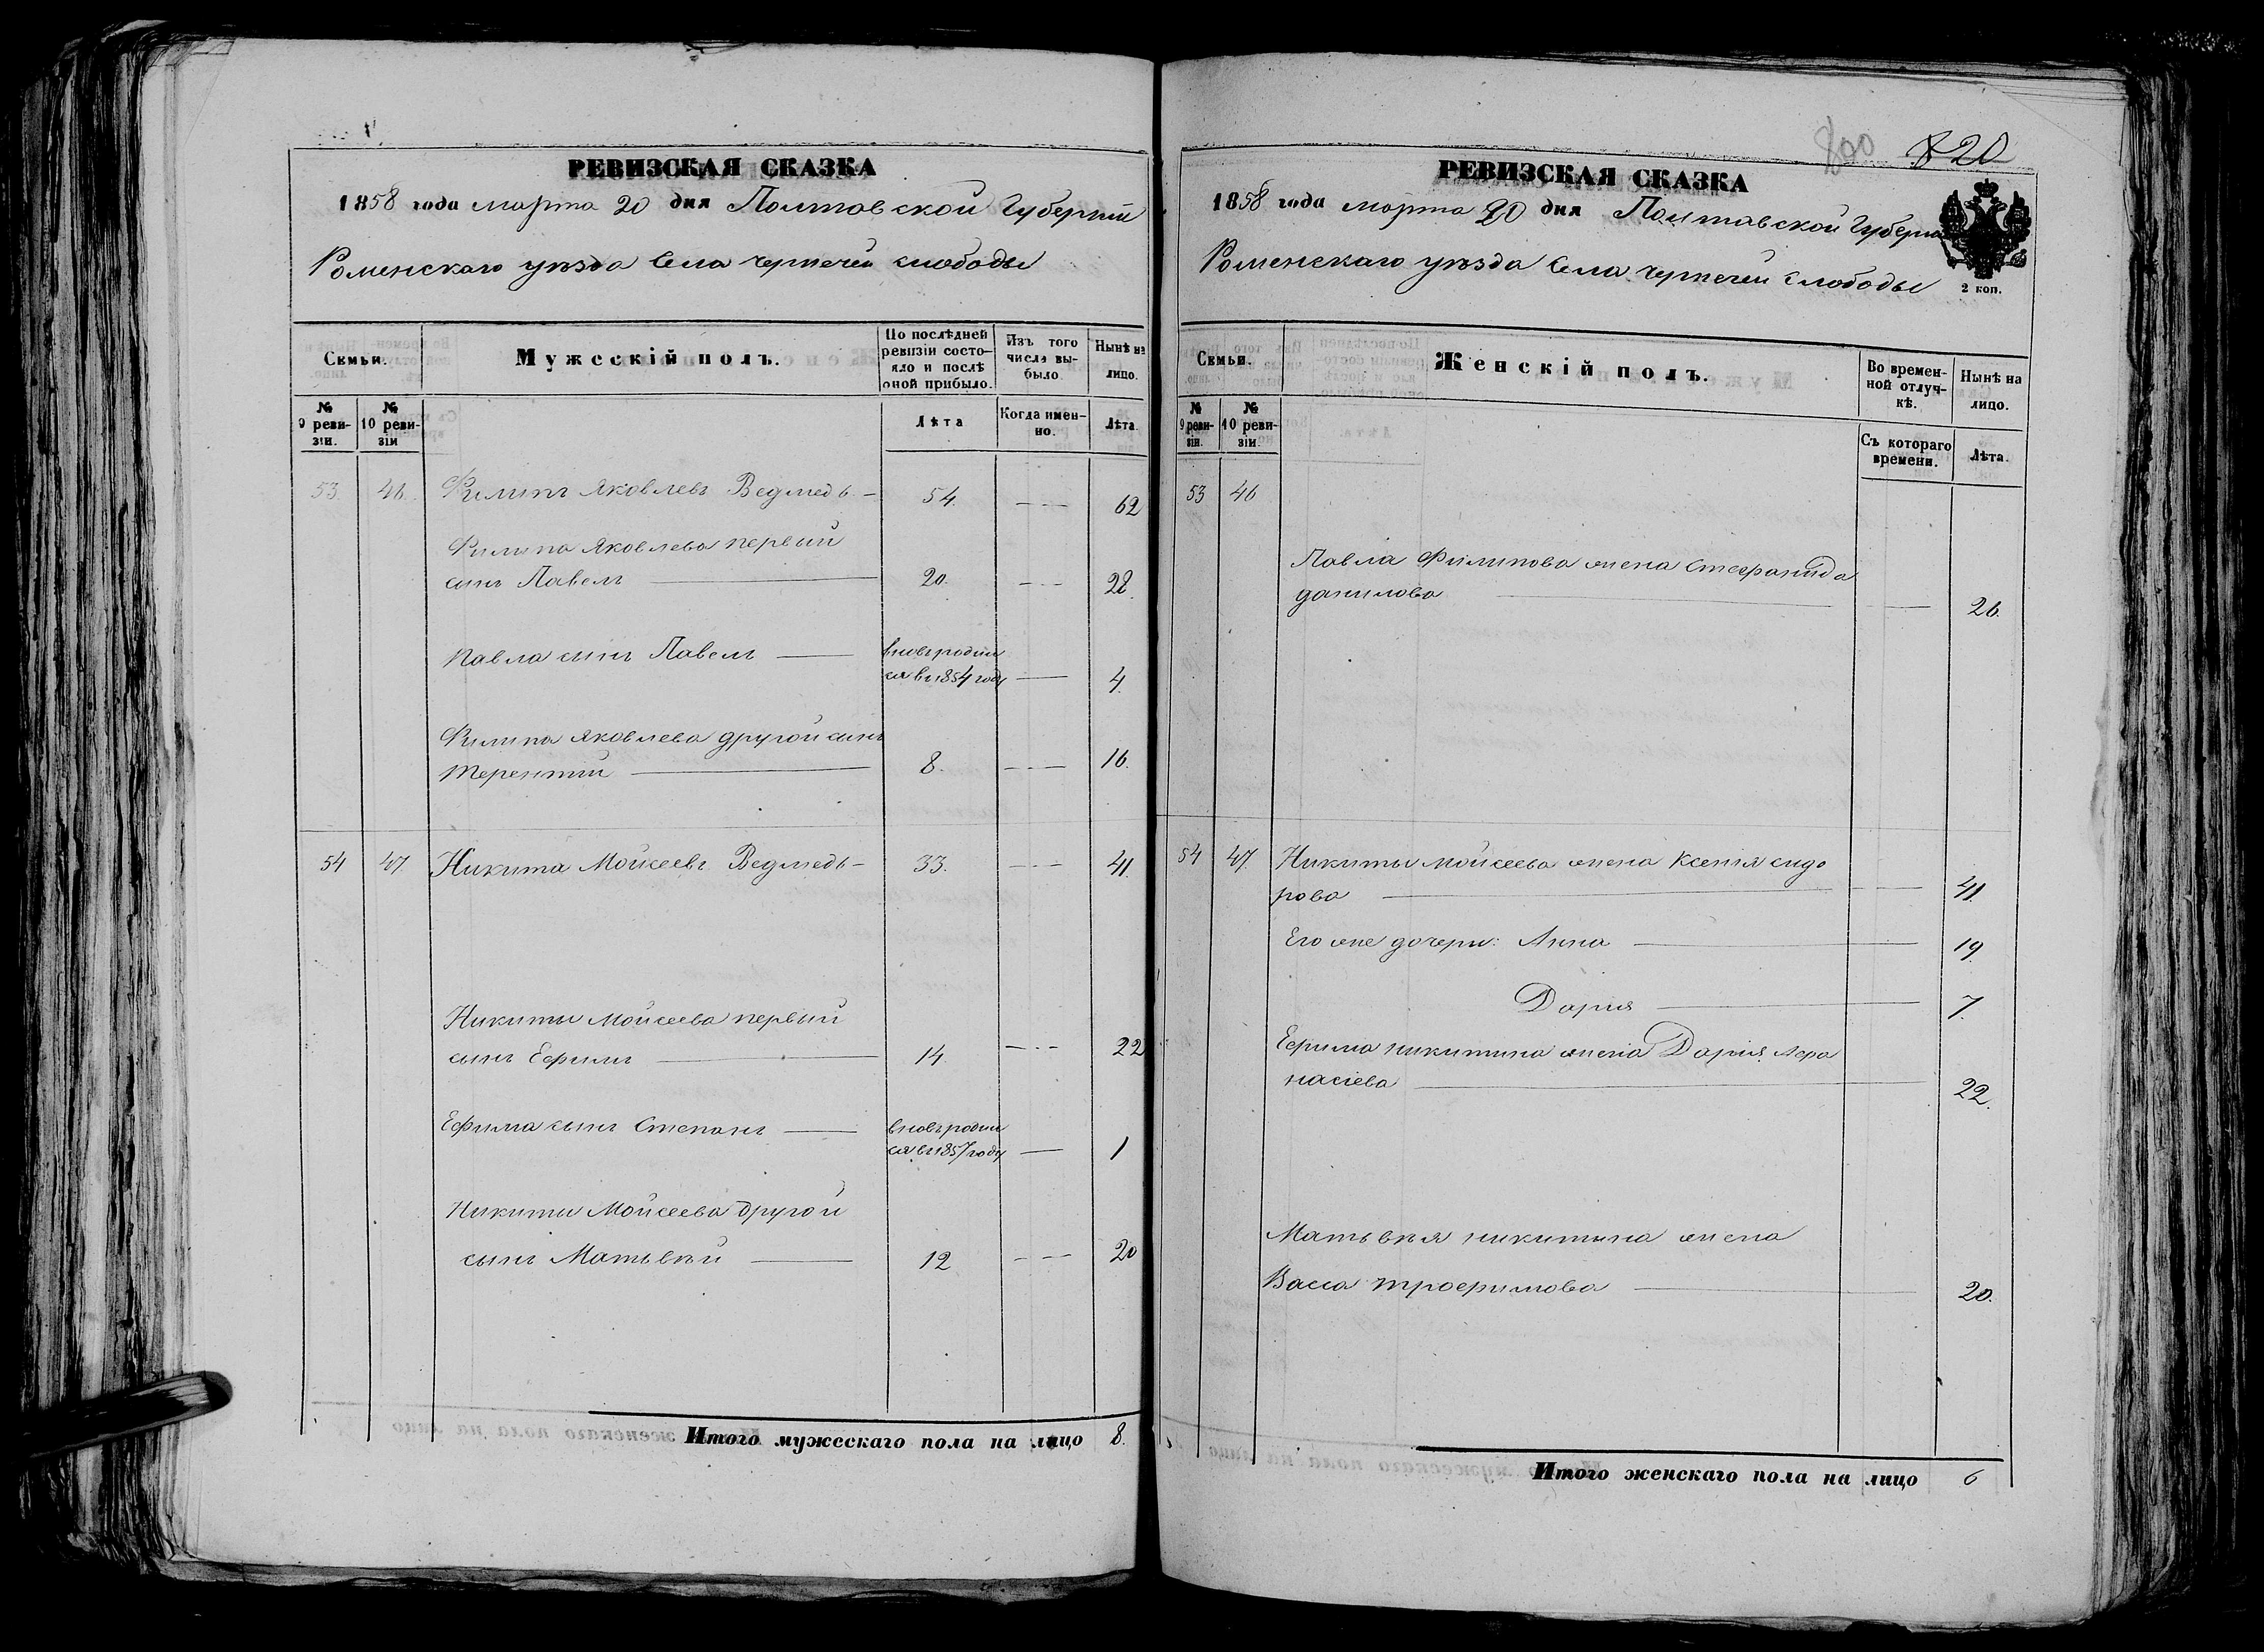 РЕВИЗСКАЯ СКАЗКА
1858 года марта 20 дня Полтавской Губерніи
Роменскаго уѣзда Села Чернечей слободы
Семьи.
Мужескій полъ.
По послѣдней ревизіи состо-
яло и послѣ
оной прибыло.
Изъ того
числа вы-
было
Нынѣ на
лицо.
№
9 реви-
зіи.
№
10 реви-
зіи
Лѣта
Когда имен-
но.
Лѣта.
53. 46. Филипъ Яковлевъ Ведмедь — 54. 62
Филипа Яковлева первый
сынъ Павелъ 20. 28.
Павла сынъ Павелъ вновь родил
ся въ 1854 году 4.
Филипа Яковлева другой сынъ
Терентій 8. 16.
54 47. Никита Мойсеевъ Ведмедь — 33. 41.
Никиты Мойсеева первый
сынъ Ефимъ 14. 22
Ефима сынъ Степанъ вновь родил
ся въ 1857 году 1
Никиты Мойсеева другой
сынъ Матьвѣй 12 20
Итого мужескаго пола на лицо 8.
800 820
РЕВИЗСКАЯ СКАЗКА
1858 года марта 20 дня Полтавской Губерн
Роменскаго уѣзда Села Чернечей Слободы
2 коп.
Семьи.
Женскій полъ.
Во времен-
ной отлуч-
кѣ.
Нынѣ на
лицо.
№
9 реви-
зіи.
№
10 реви-
зіи
Съ котораго
времени.
Лѣта.
53 46
Павла Филипова жена Стефанида
данилова 26.
54 47. Никиты Мойсеева жена Ксенія сидо
рова 41.
Его же дочери: Анна 19.
Дарія 7.
Ефима никитина жена Дарія Афа
насіева 22.
Матьвѣя никитина жена
Васса трофимова 20.
Итого женскаго пола на лицо 6